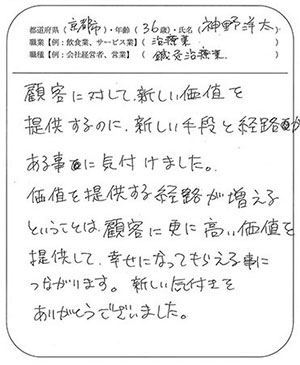 都道府県（京都市）・年齢（36歳）・氏名（神野洋太）
職業【例：飲食業、サービス業】（治療業）
職種【例：会社経営者、営業】（鍼灸治療業）
顧客に対して、新しい価値を
提供するのに、新しい手段と経路が
ある事に気付けました。
価値を提供する経路が増える
ということは、顧客に更に高い価値を
提供して、幸せになってもらえる事に
つながります。新しい気付きを
ありがとうございました。